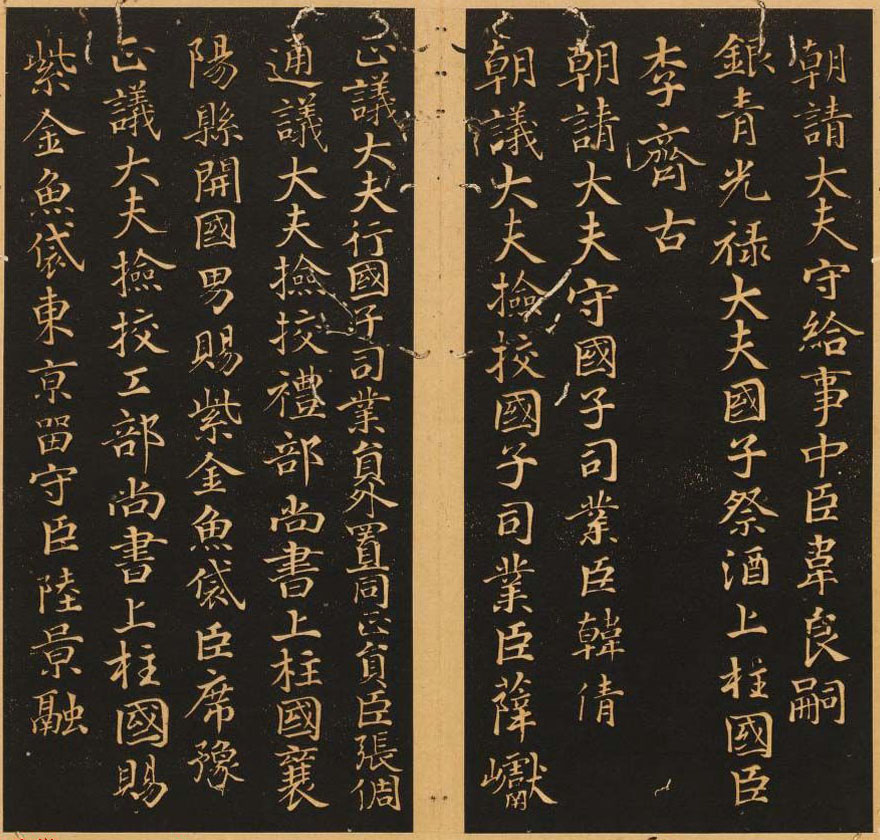 朝請大夫守給事中臣韋良嗣
銀青光禄大夫國子祭酒上柱國臣
李齊古
朝請大夫守國子司業臣韓倩
朝議大夫撿挍國子司業臣薛巘
正議大夫行國子司業員外置同正員臣張倜
通議大夫撿挍禮部尚書上柱國襄
陽縣開國男賜紫金魚袋臣席豫
正議大夫撿挍工部尚書上柱國賜
紫金魚袋東亰留守臣陸景融